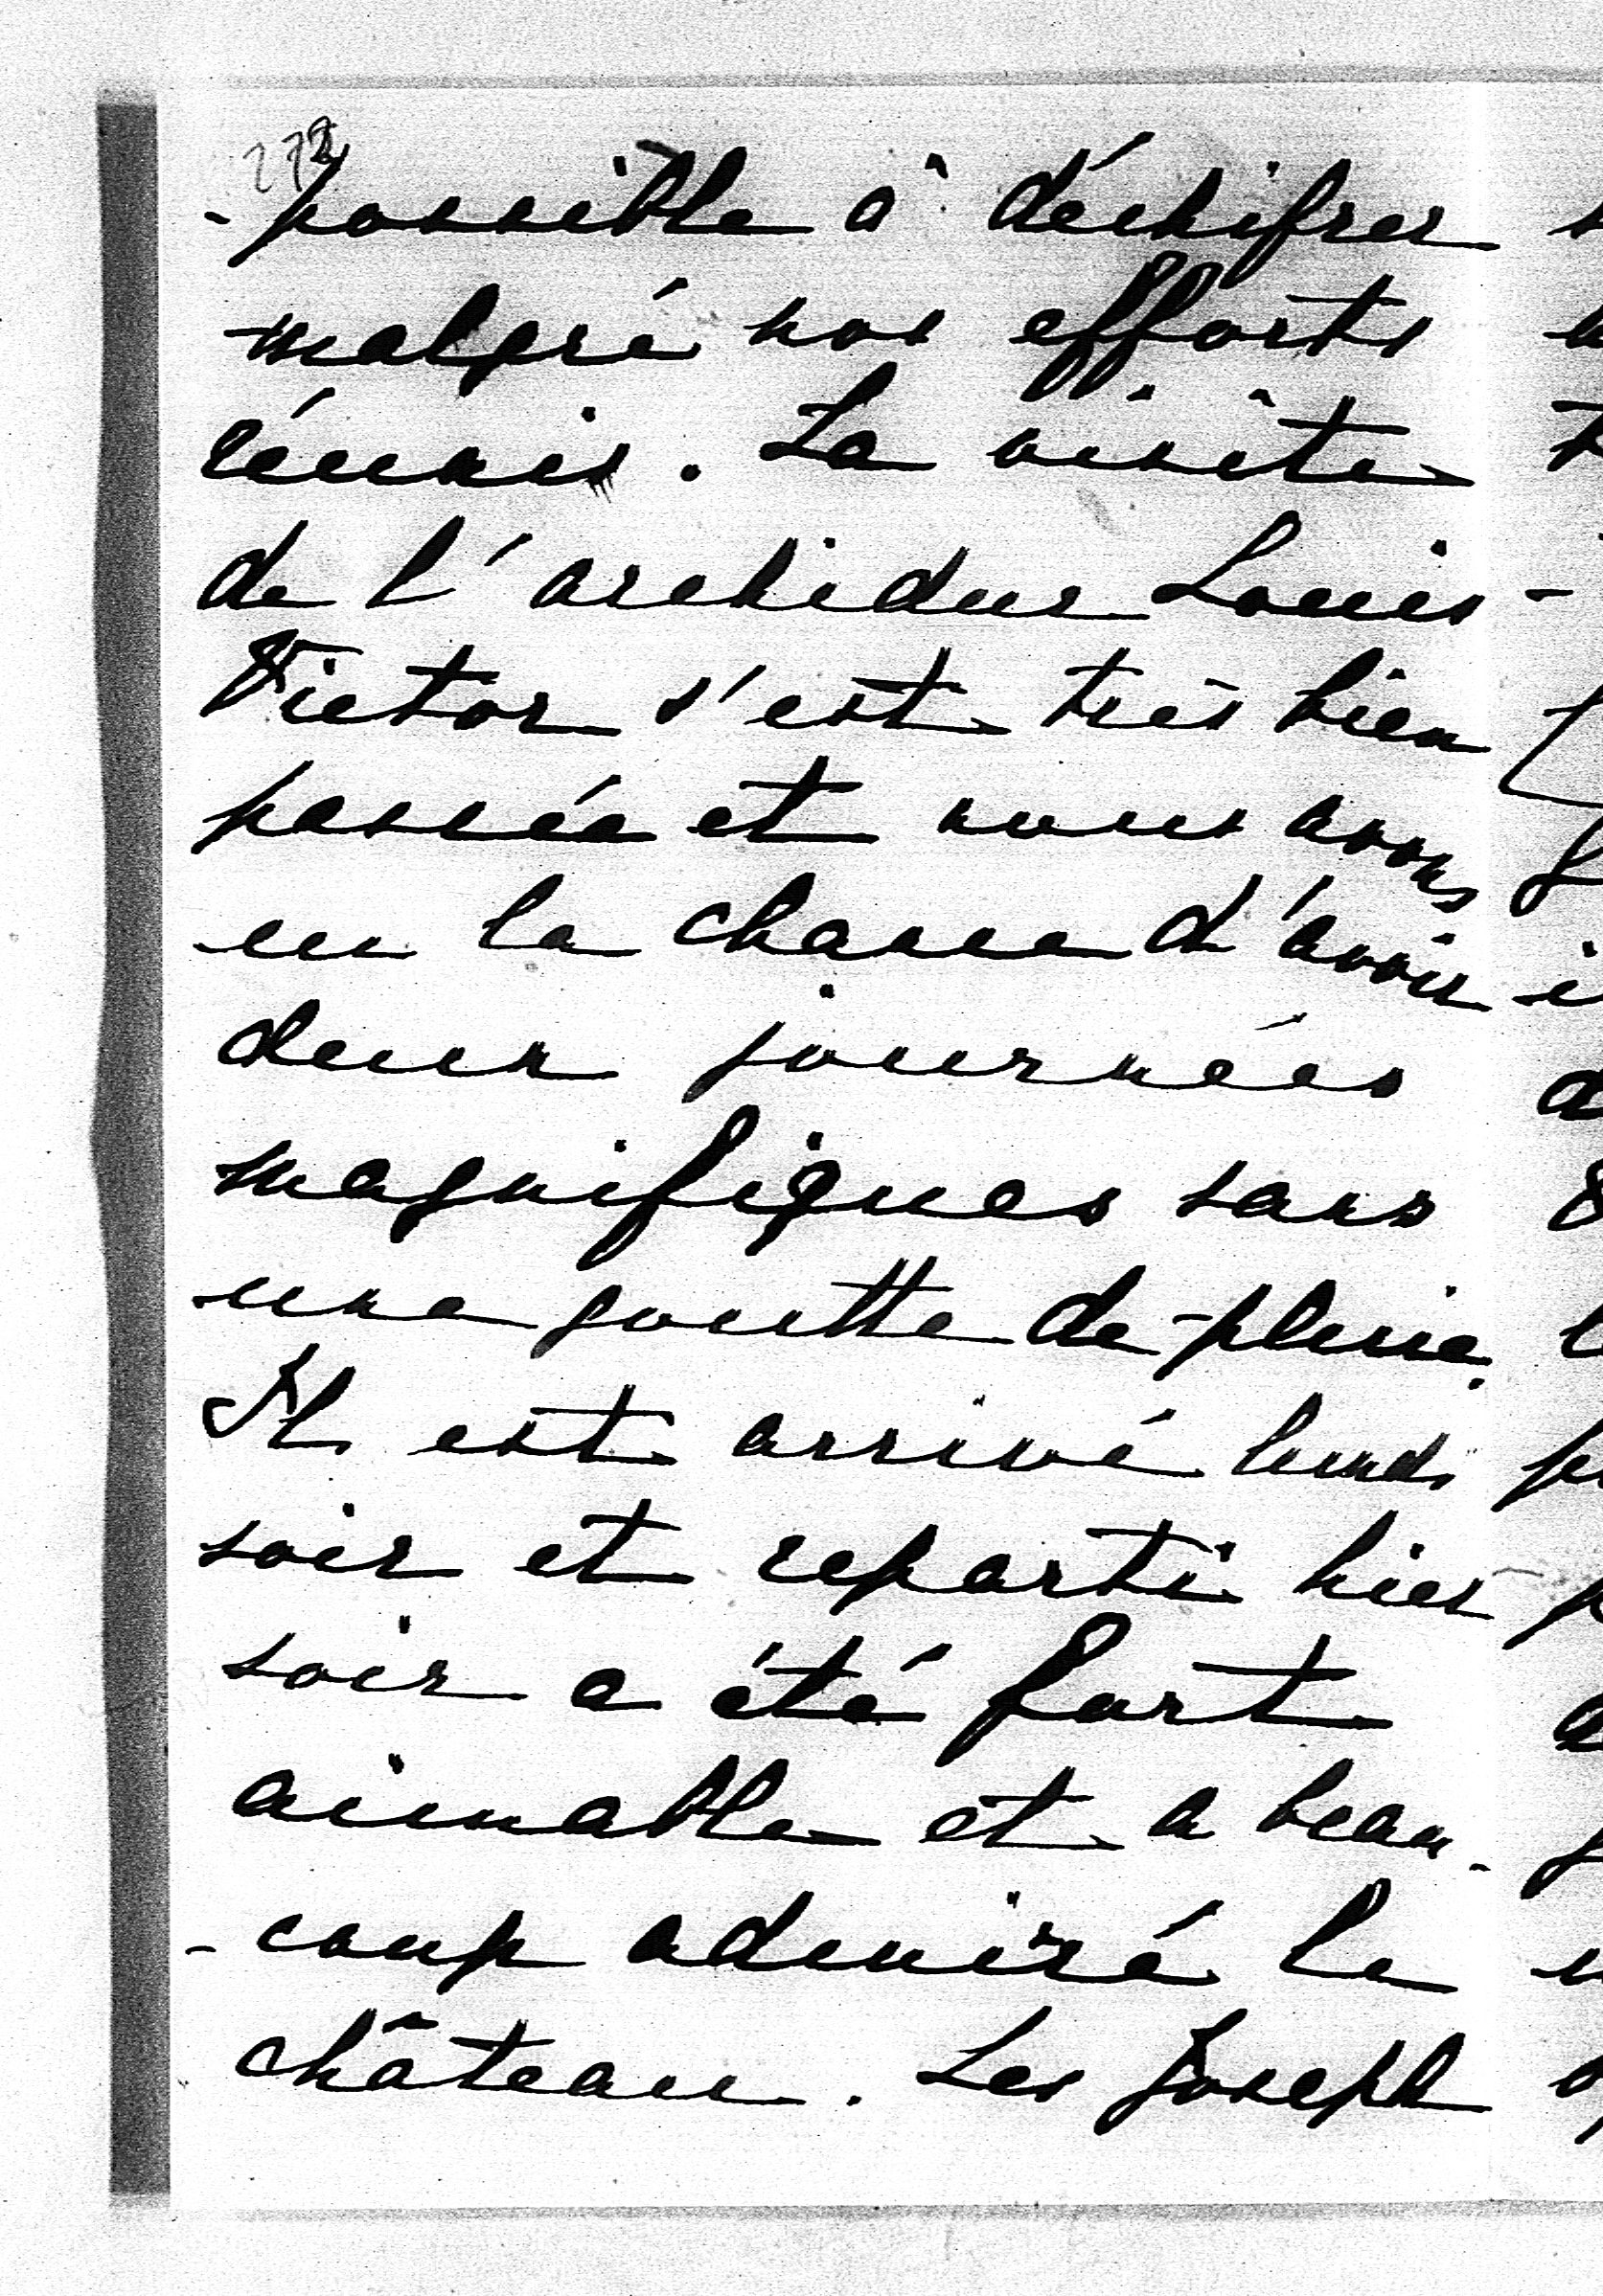 -possible à déchifrer
malgré nos efforts
réunis. La visite
de l'archiduc Louis-
Victor s'est très bien
passée et nous avons
eu la chance d'avoir
deux journées
magnifiques sans
une goutte de pluie.
Il est arrivé lundi
soir et reparti hier
soir a été fort
aimable et a beau-
-coup admiré le
château. Les Joseph